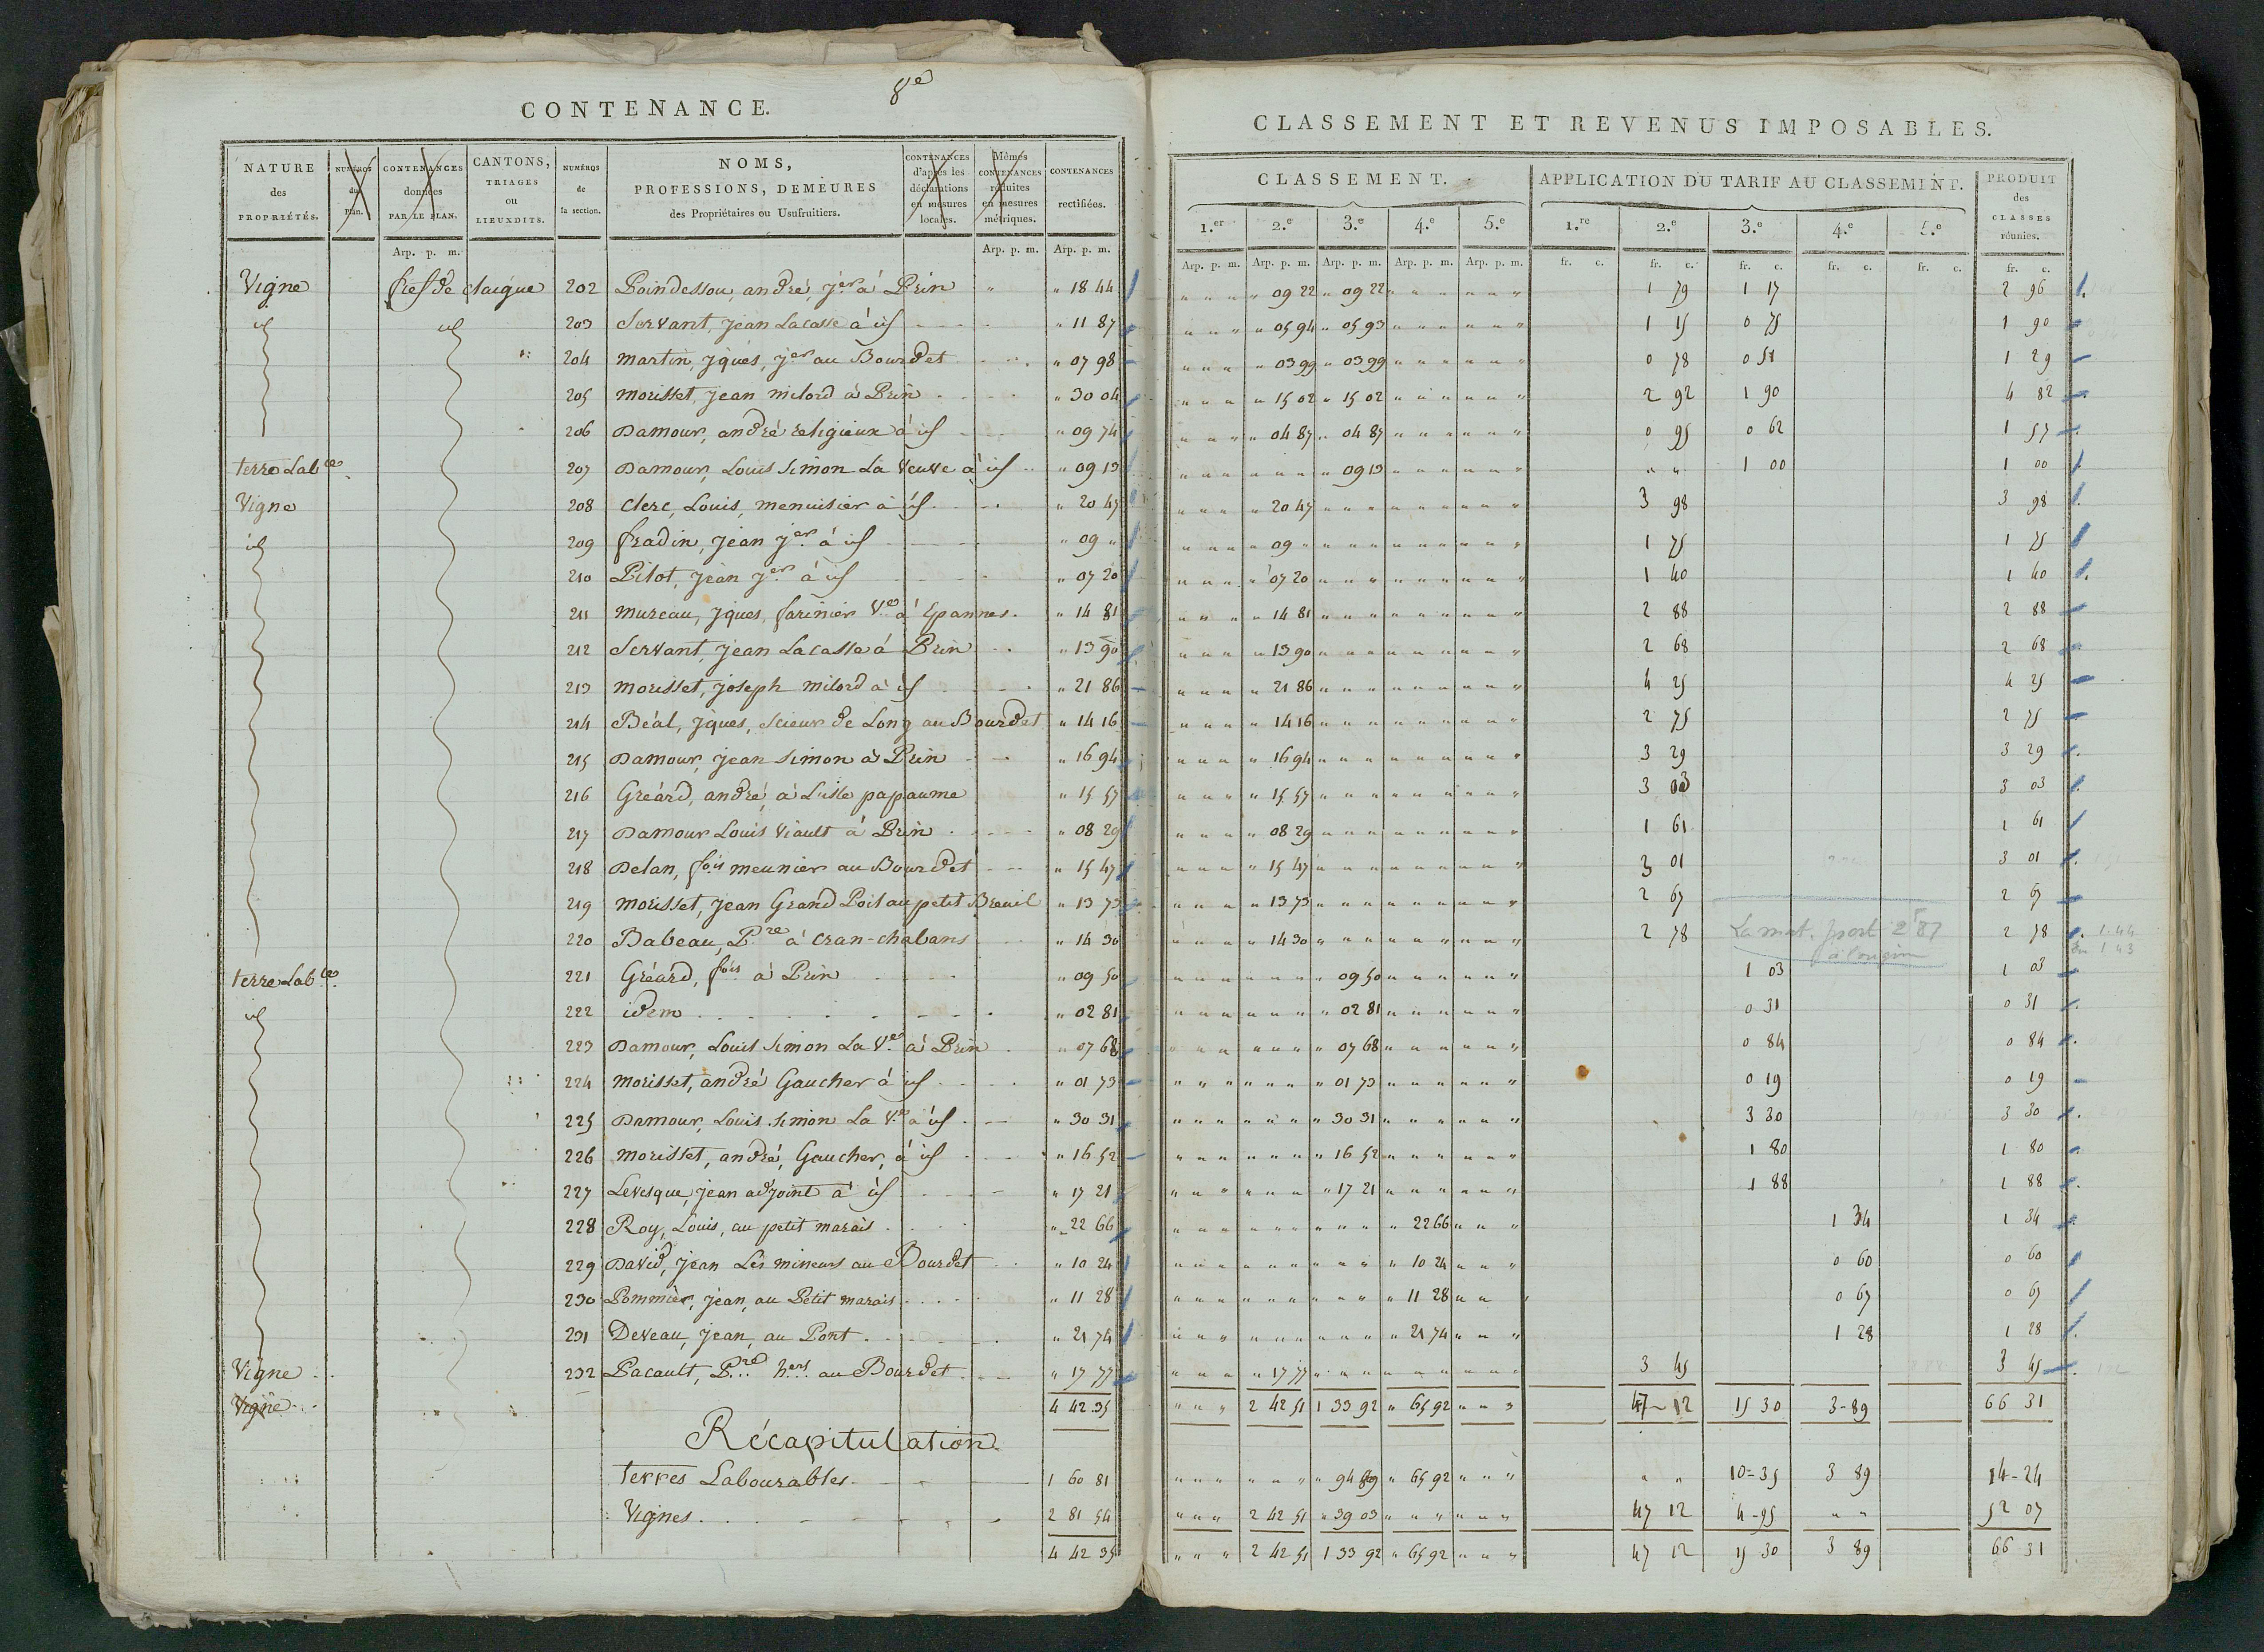 8e
CONTENANCE.
NATURE des PROPRIÉTÉS. | NUMÉROS du Plan. | CONTENANCES données PAR LE PLAN. | CANTONS, TRIAGES ou LIEUXDITS. | NUMÉROS de la section. | NOMS, PROFESSIONS, DEMEURES des Propriétaires ou Usufruitiers. | CONTENANCES d'après les déclarations en mesures locales. | Mêmes CONTENANCES réduites en mesures métriques. | CONTENANCES rectifiées.
Arp. p. m. | Arp. p. m. | Arp. p. m.
Vigne | fief de claigue | 202 | Poindessou, andré, jer à Prin | " | " 18 44
id | id | 203 | Servant, jean Lacasse à id | " 11 87
204 | Martin, jques, jer au Bourdet | " 07 98
205 | Morisset, jean milord à Prin | " 30 04
206 | Damour, andré religieux à id | " 09 74
terre Lable | 207 | Damour, Louis Simon La Veuve à id | " 09 13
Vigne | 208 | Clerc, Louis, menuisier à id | " 20 47
id | 209 | fradin, jean jer à id | " 09 "
210 | Pilot, jean jer à id | " 07 20
211 | Mureau, jques, farinier Ve à Epannes | " 14 81
212 | Servant, jean Lacasse à Prin | " 13 90
213 | Morisset, joseph milord à id | " 21 86
214 | Béal, jques, Scieur de Long au Bourdet | " 14 16
215 | Damour, jean Simon à Prin | " 16 94
216 | Gréard, andré, à Lisle papaume | " 15 57
217 | Damour Louis Viault à Prin | " 08 29
218 | Delan, fois meunier au Bourdet | " 15 47
219 | Morisset, jean Grand Poil au petit Breuil | " 13 73
220 | Babeau, Pre à Cran-chabans | " 14 30
terre Lable | 221 | Gréard, fois à Prin | " 09 50
id | 222 | idem | " 02 81
223 | Damour, Louis Simon La Ve à Prin | " 07 68
224 | Morisset, andré Gaucher à id | " 01 73
225 | Damour, Louis Simon La Ve à id | " 30 31
226 | Morisset, andré, Gaucher, à id | " 16 52
227 | Levesque, jean adjoint à id | " 17 21
228 | Roy, Louis, au petit marais | " 22 66
229 | David, jean Les mineurs au Bourdet | " 10 24
230 | Pommier, jean, au Petit marais | " 11 28
231 | Deveau, jean, au Pont | " 21 74
Vigne | 232 | Pacault, Pre hers au Bourdet | " 17 77
Vigne | 4 42 35
Récapitulation
terres Labourables | 1 60 81
Vignes | 2 81 54
4 42 35
CLASSEMENT ET REVENUS IMPOSABLES.
CLASSEMENT. | APPLICATION DU TARIF AU CLASSEMENT. | PRODUIT des CLASSES réunies.
1.er | 2.e | 3.e | 4.e | 5.e | 1.re | 2.e | 3.e | 4.e | 5.e
Arp. p. m. | Arp. p. m. | Arp. p. m. | Arp. p. m. | Arp. p. m. | fr. c. | fr. c. | fr. c. | fr. c. | fr. c. | fr. c.
" 09 22 | " 09 22 | 1 79 | 1 17 | 2 96
" 05 94 | " 05 93 | 1 15 | 0 75 | 1 90
" 03 99 | " 03 99 | 0 78 | 0 51 | 1 29
" 15 02 | " 15 02 | 2 92 | 1 90 | 4 82
" 04 87 | " 04 87 | 0 95 | 0 62 | 1 57
" 09 13 | " " | 1 00 | 1 00
" 20 47 | 3 98 | 3 98
" 09 " | 1 75 | 1 75
" 07 20 | 1 40 | 1 40
" 14 81 | 2 88 | 2 88
" 13 90 | 2 68 | 2 68
" 21 86 | 4 25 | 4 25
" 14 16 | 2 75 | 2 75
" 16 94 | 3 29 | 3 29
" 15 57 | 3 03 | 3 03
" 08 29 | 1 61 | 1 61
" 15 47 | 3 01 | 3 01
" 13 73 | 2 67 | 2 67
" 14 30 | 2 78 | La mat. port 2f 87 | 2 78 | 1.44
à l'origin | 1 43
" 09 50 | 1 03 | 1 03
" 02 81 | 0 31 | 0 31
" 07 68 | 0 84 | 0 84
" 01 73 | 0 19 | 0 19
" 30 31 | 3 30 | 3 30
" 16 52 | 1 80 | 1 80
" 17 21 | 1 88 | 1 88
" 22 66 | 1 34 | 1 34
" 10 24 | 0 60 | 0 60
" 11 28 | 0 67 | 0 67
" 21 74 | 1 28 | 1 28
" 17 77 | 3 45 | 3 45
" " " | 2 42 51 | 1 33 92 | " 65 92 | " " " | 47-12 | 15 30 | 3-89 | 66 31
" " " | " " " | " 94 89 | " 65 92 | " " " | " " | 10=35 | 3 89 | 14-24
" " " | 2 42 51 | " 39 03 | " " " | " " " | 47 12 | 4-95 | " " | 52 07
" " " | 2 42 51 | 1 33 92 | " 65 92 | " " " | 47 12 | 15 30 | 3 89 | 66 31